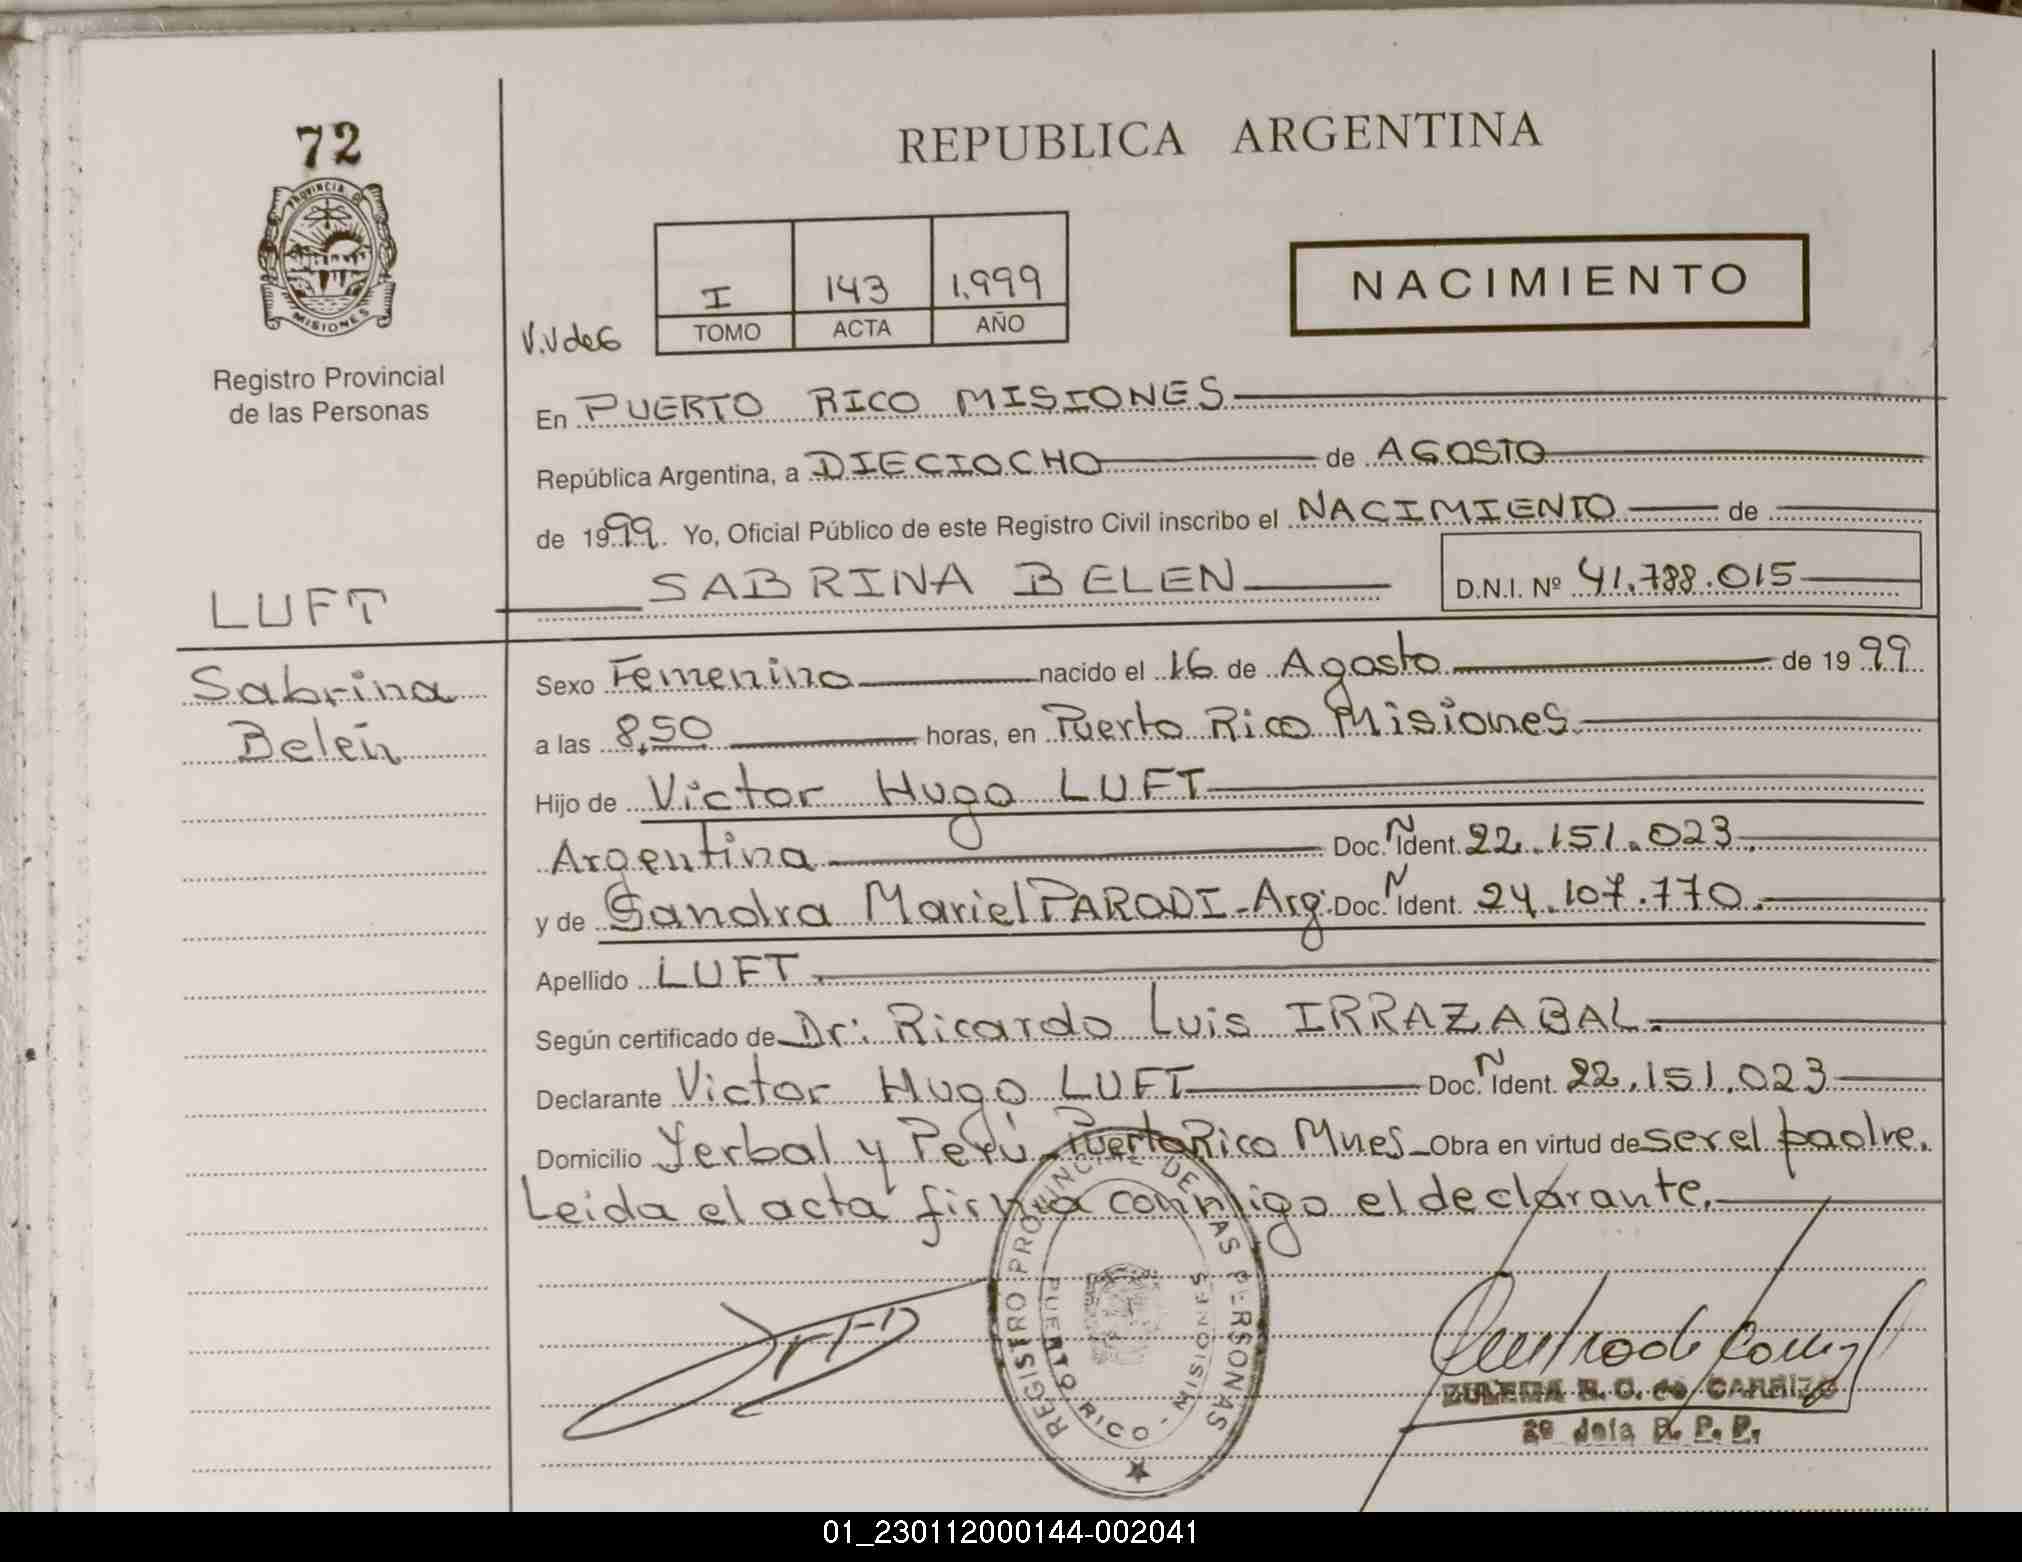 72
PROVINCIA DE
MISIONES
Registro Provincial
de las Personas
REPUBLICA ARGENTINA
I 143 1.999
TOMO ACTA AÑO
V.V de G
NACIMIENTO
En PUERTO RICO MISIONES
República Argentina, a DIECIOCHO de AGOSTO
de 1999. Yo, Oficial Público de este Registro Civil inscribo el NACIMIENTO de
SABRINA BELEN D.N.I. Nº 41.788.015
LUFT
Sabrina
Belén
Sexo Femenino nacido el 16 de Agosto de 1999
a las 8,50 horas, en Puerto Rico Misiones
Hijo de Victor Hugo LUFT
Argentina Doc. N Ident. 22.151.023.
y de Sandra Mariel PARODI - Arg. Doc. N Ident. 24.107.770.
Apellido LUFT.
Según certificado de Dr: Ricardo Luis IRRAZABAL.
Declarante Victor Hugo LUFT Doc. N Ident. 22.151.023
Domicilio Yerbal y Perú Puerto Rico Mnes Obra en virtud de ser el padre.
Leida el acta firma conmigo el declarante.
REGISTRO PROVINCIAL DE LAS PERSONAS
PUERTO RICO - MISIONES
ZULEMA R. C. de CARRIZO
R. P. P.
01_230112000144-002041